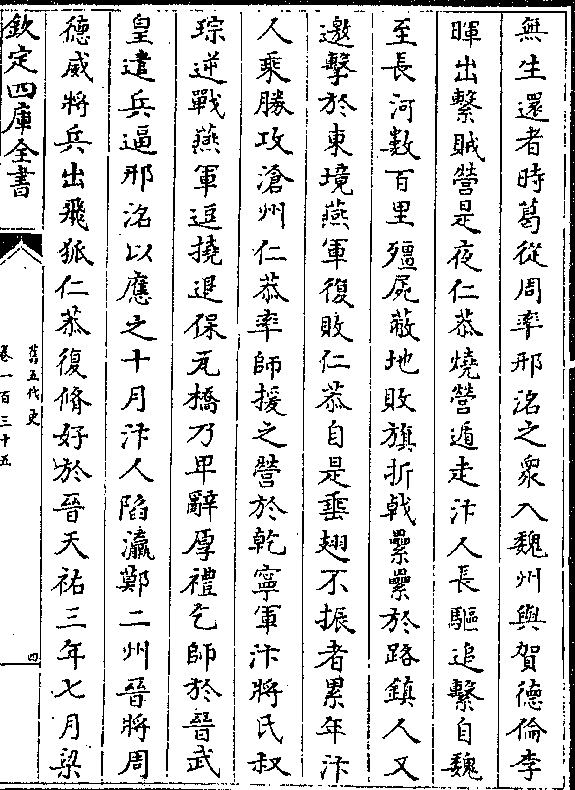 無生還者時葛從周率邢洺之衆入魏州與賀德倫李
暉出擊賊營是夜仁恭燒營遁走汴人長驅追擊自魏
至長河數百里殭屍蔽地敗旗折戟纍纍於路鎮人又
邀擊於東境燕軍復敗仁恭自是垂翅不振者累年汴
人乘勝攻滄州仁恭率師援之營於乾寧軍汴將氏叔
琮逆戰燕軍逗撓退保瓦橋乃卑辭厚禮乞師於晉武
皇遣兵逼邢洺以應之十月汴人陷瀛鄭二州晉將周
德威將兵出飛狐仁恭復脩好於晉天祐三年七月梁
欽定四庫全書
舊五代史
卷一百三十五
四